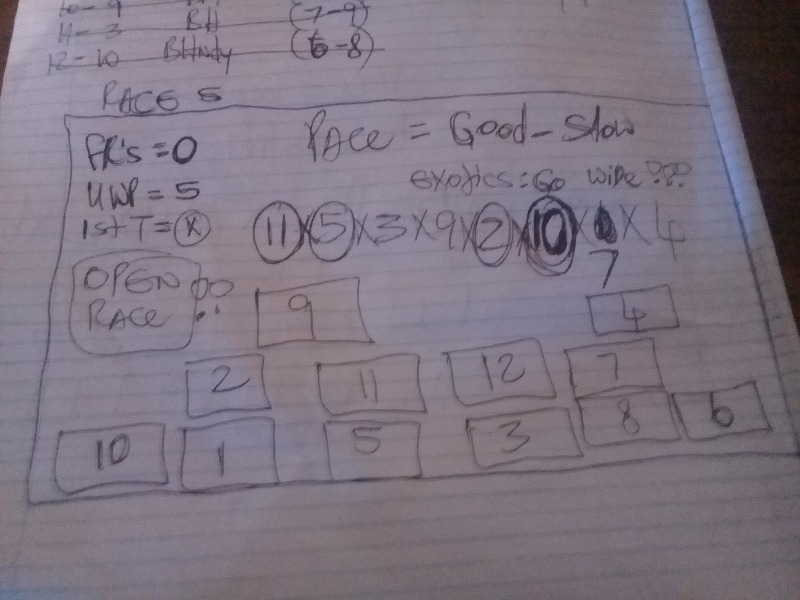 11-3 BH (7-9)
12-10 BHNdy (6-8)
RACE 5
FR's = 0 PACE = Good - Slow
UWP = 5 exotics: Go wide???
1st T = X 11 X 5 X 3 X 9 X 2 X 10 X X 4
7
OPEN RACE
9 4
2 11 12 7
10 1 5 3 8 6